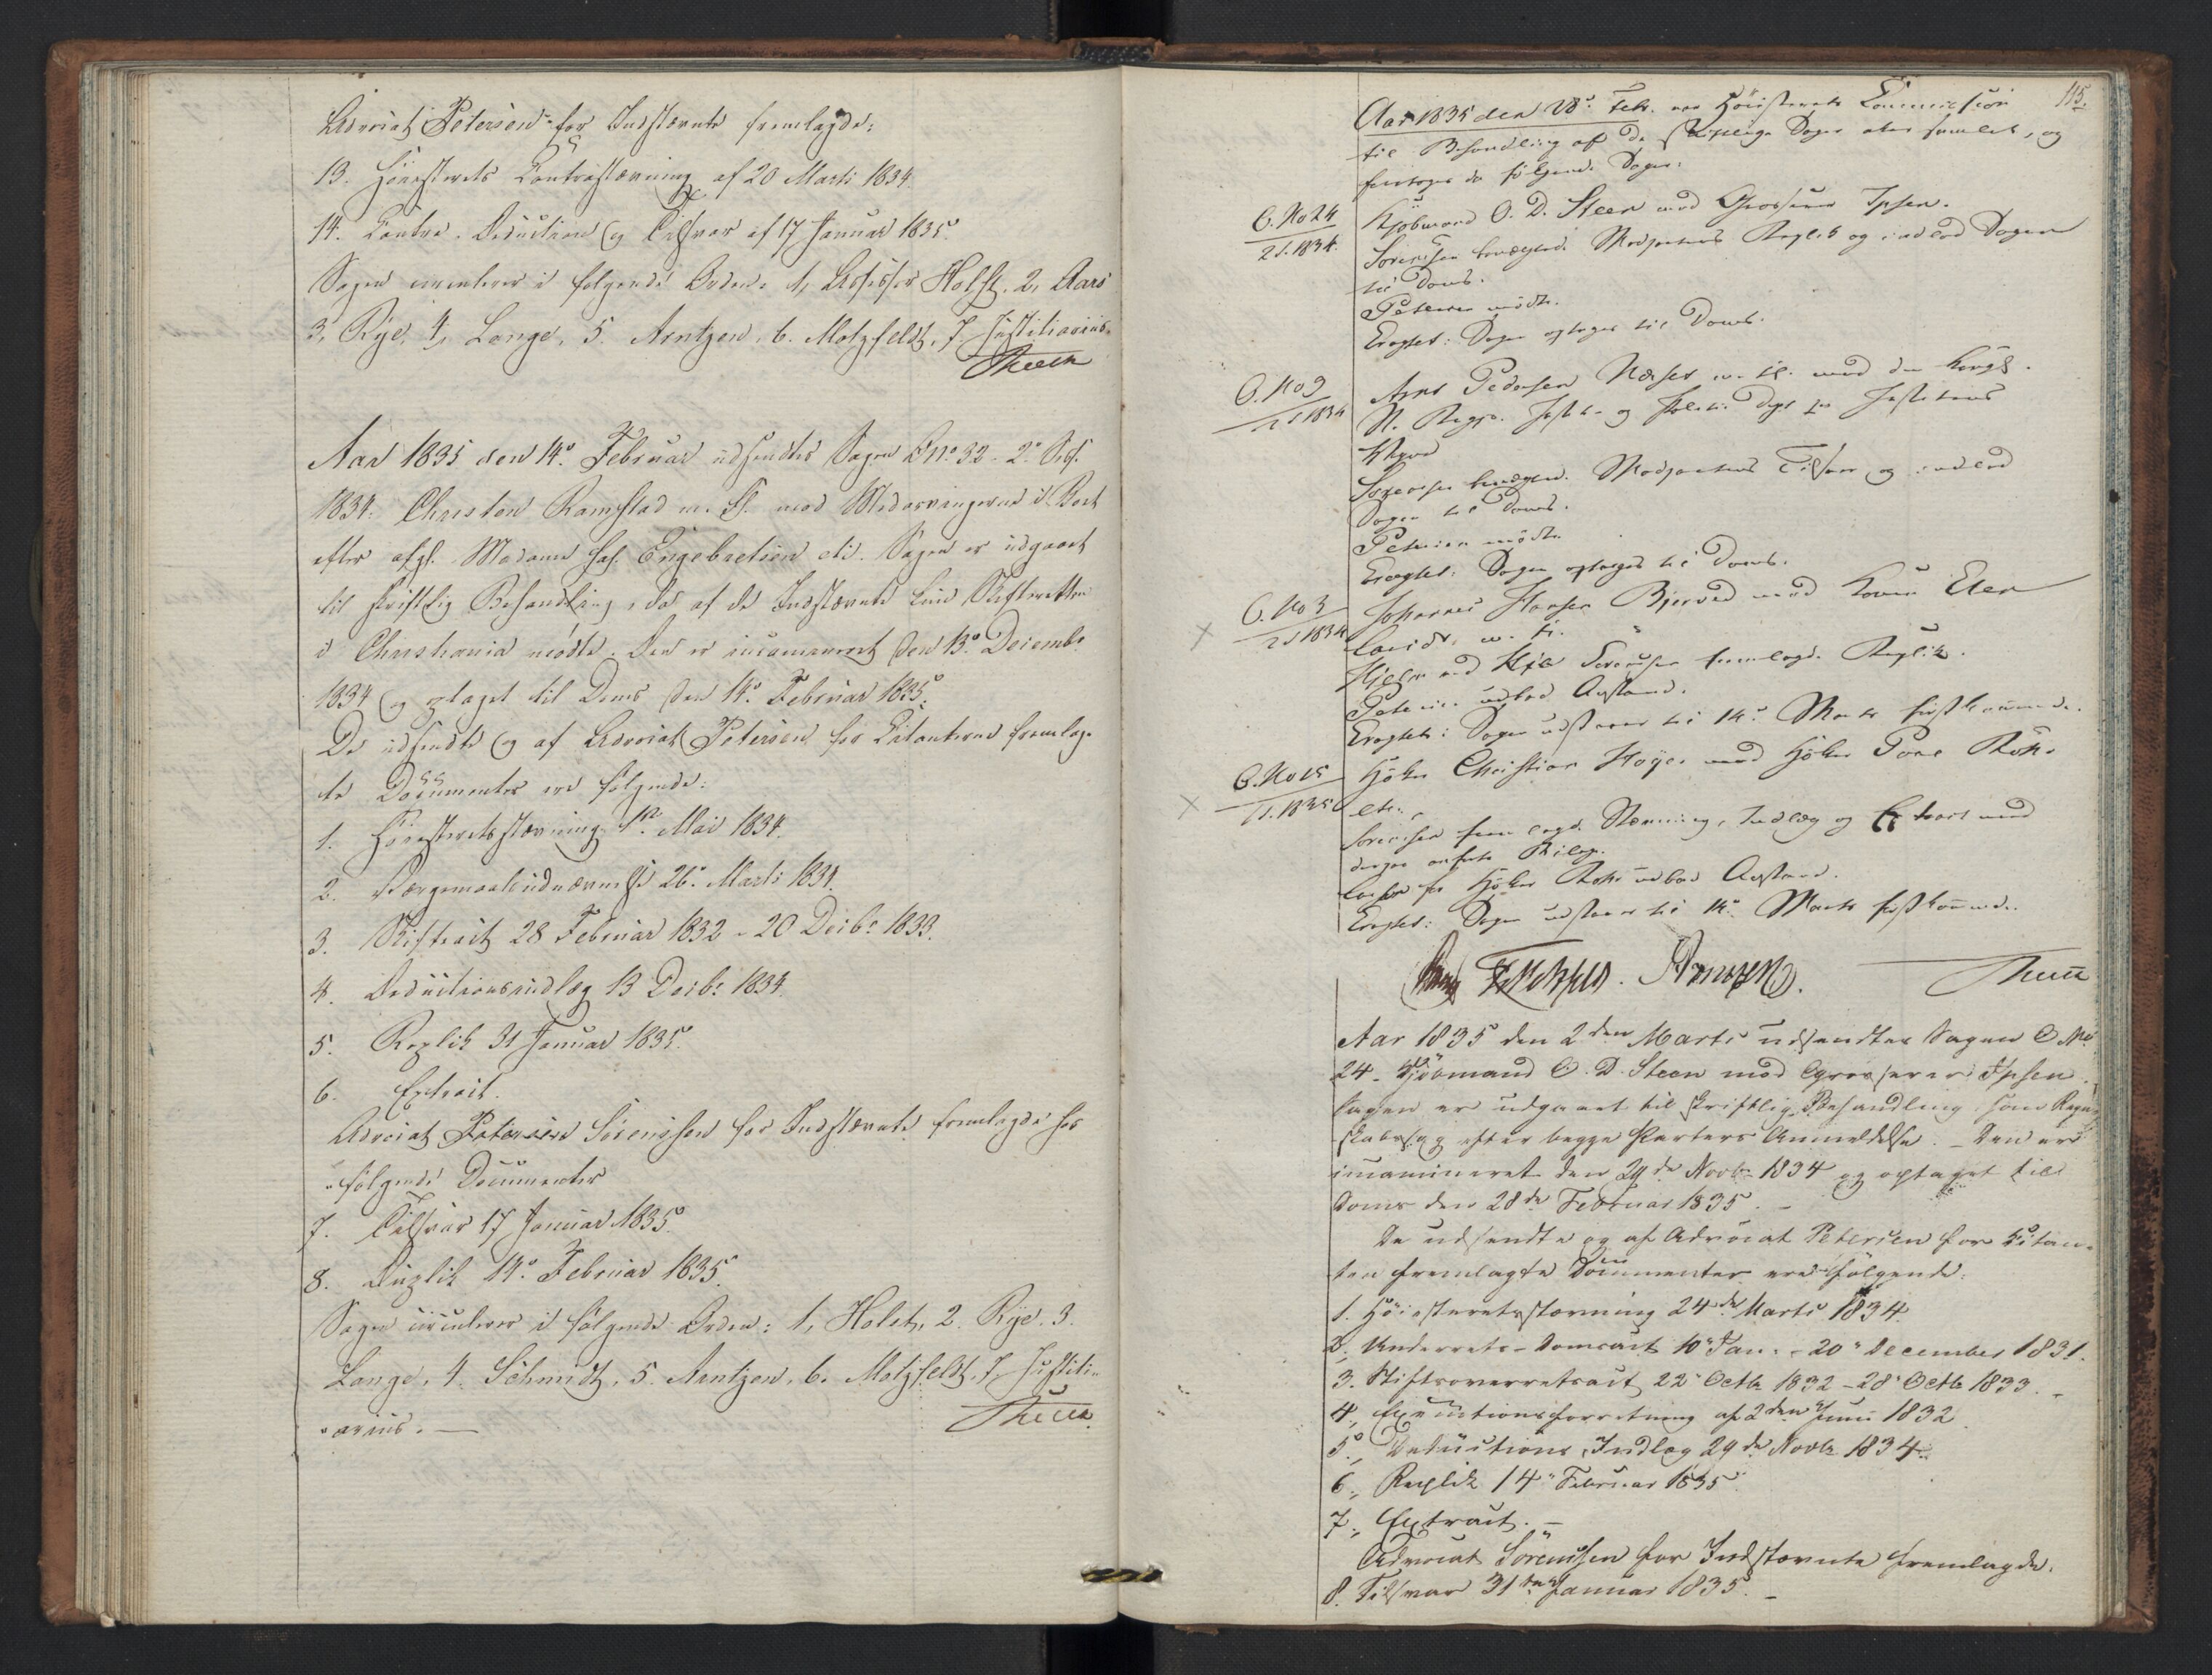 Advocat Petersen for Indstævnte fremlagde:
13. Høiesterets Contrastævning af 20 Marts 1834.
14. Contra-Deduction og Tilsvar af 17 Januar 1835.
Sagen circulerer i følgende Orden: 1, Assessor Holst, 2, Aars
3, Rye, 4, Lange, 5. Arntzen, 6. Motzfeldt, 7. Justitiarius.
Aar 1835 den 14de Februar udsendtes Sagen C No 32 - 2. Ses.
1834. Christen Ramstad m. fl. mod Medarvingerne i Boet
efter afg. Madame Engebretsen etc. Sagen er udgaaet
til skriftlig Behandling, da af de Indstævnte kun Skifteretten
i Christiania mødte. Den er incamineret den 13de Decembr
1834 og optaget til Doms den 14de Februar 1835.
De udsendte og af Advocat Petersen for Citanterne fremlag-
te Documenter ere følgende:
1. Høiesteretsstævning 1ste Mai 1834.
2. Værgemaalsudnævnelse 26. Marts 1834.
3. Skifteact 28 Februar 1832 - 20 Decbr 1833.
4. Deductionsindlæg 13 Decbr 1834.
5. Replik 31 Januar 1835.
6. Extract.
Advocat Petersen Sørenssen for Indstævnte fremlagde
følgende Documenter
7. Tilsvar 17 Januar 1835.
8. Duplik 14. Februar 1835.
Sagen circulerer i følgende Orden: 1, Holst, 2. Rye. 3.
Lange, 4. Schmidt, 5. Arntzen, 6. Motzfeldt, 7, Justiti-
arius. —
115.
Aar 1835 den 28de Febr. var Høiesterets Commission
til Behandling af de skriftlige Sager atter samlet, og
foretoges da følgende Sager:
C. No 24
2 S. 1834.
Kjøbmand O. D. Steen mod Grosserer Ipsen.
Sørensen Modpartens Replik og indlod Sagen
til Doms.
Petersen mødte.
Eragtet: Sagen optages til Doms.
C. No 9
1834
Arne Pedersen Næsset m. fl. mod den kongl.
N. Regjs. Justits- og Politie Dept
Sørensen Modpartens Tilsvar og indlod
Sagen til Doms.
Petersen mødte.
Eragtet: Sagen optages til Doms.
C. No 3
2 S 1834
Johannes Hansen Bjerved mod Konen Elen
m. fl.
Sørensen fremlagde Replik.
Petersen udbad Anstand.
Eragtet: Sagen udstaaer til 14. Marts førstkommende.
C. No 15
1 S. 1835
Høker Christian Høyer mod Høker Povel
etc.
Sørensen fremlagde Stævning, Indlæg og Extract med
Høker udbad Anstand.
Eragtet: Sagen udstaaer til 14. Marts førstkommende.
Arntzen.
Aar 1835 den 2den Marts udsendtes Sagen C No
24 - Kjøbmand O. D. Steen mod Grosserer Ipsen.
Sagen er udgaaet til skriftlig Behandling som Regn-
skabssag efter begge Parters Anmeldelse. - Den er
incamineret den 29de Novbr 1834 og optaget til
Doms den 28de Februar 1835. -
De udsendte og af Advocat Petersen for Citan-
ten fremlagte Documenter ere følgende:
1. Høiesteretsstævning 24de Marts 1834.
2, Underrets-Domsact 10. Jan: - 20. December 1831.
3. Stiftsoverretsact 22. Octb 1832 - 28. Octb 1833. -
4, Executionsforretning af 2den Juni 1832
5, Deductions Indlæg 29de Novbr 1834.
6, Replik 14. Februar 1835.
7, Extract. -
Advocat Sørenssen for Indstævnte fremlagde.
8. Tilsvar 31te Januar 1835. -